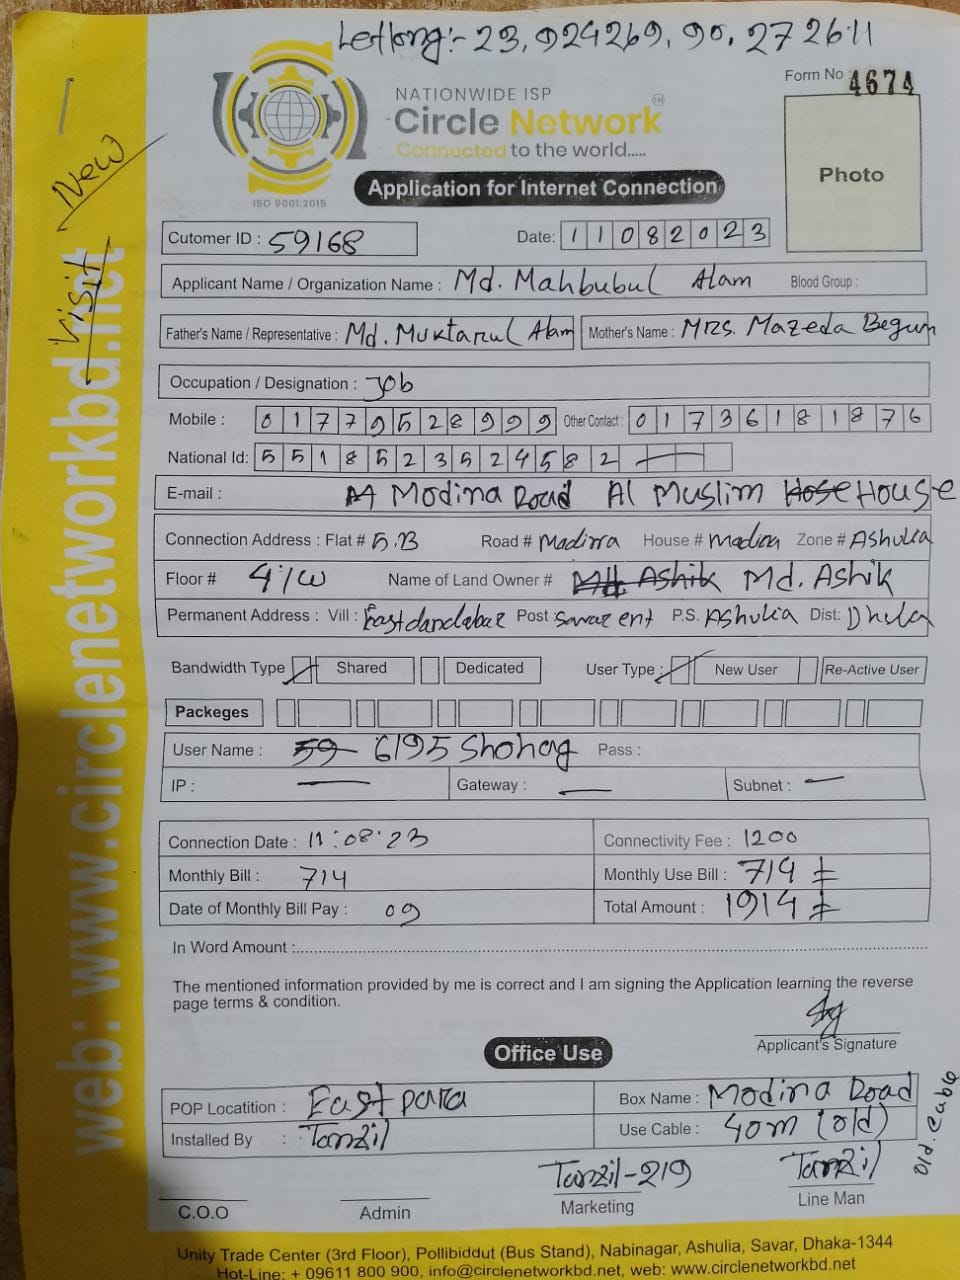 Letlong:- 23,924269, 90.272611
Form No 4674
NATIONWIDE ISP
Circle Network TM
Connected to the world.....
ISO 9001:2015
Application for Internet Connection
Photo
New
Visit
web: www.circlenetworkbd.net
Cutomer ID : 59168 Date: 11082023
Applicant Name / Organization Name : Md. Mahbubul Alam Blood Group :
Father's Name / Representative : Md. Muktarul Alam Mother's Name : Mrs. Mazeda Begum
Occupation / Designation : Job
Mobile : 01779528999 Other Contact : 01736181876
National Id: 5518523524582
E-mail : Modina Road Al Muslim House
Connection Address : Flat # 5.B Road # Madina House # Madina Zone # Ashulia
Floor # 4 Name of Land Owner # Ashik Md. Ashik
Permanent Address : Vill : Eastdandabar Post Savar ent P.S. Ashulia Dist: Dhaka
Bandwidth Type Shared Dedicated User Type : New User Re-Active User
Packeges
User Name : 59 6195 Shohag Pass :
IP : Gateway : Subnet :
Connection Date : 11:08:23 Connectivity Fee : 1200
Monthly Bill : 714 Monthly Use Bill : 714
Date of Monthly Bill Pay : 09 Total Amount : 1914
In Word Amount :
The mentioned information provided by me is correct and I am signing the Application learning the reverse
page terms & condition.
Applicant's Signature
Office Use
POP Locatition : East para Box Name : Modina Road
Installed By : Tanzil Use Cable : 40m (old)
old. cable
Tanzil-219 Tanzil
C.O.O Admin Marketing Line Man
Unity Trade Center (3rd Floor), Pollibiddut (Bus Stand), Nabinagar, Ashulia, Savar, Dhaka-1344
Hot-Line: + 09611 800 900, info@circlenetworkbd.net, web: www.circlenetworkbd.net